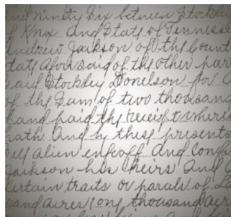 and ninety Six between Stockley
of Knox And State of Tennessee
Andrew Jackson of the Count
State aforesaid of the other part
said Stockley Donelson for
of the Sum of two thousand
hand paid the receipt
hath And by these presents
sell alien enfeoff And Conf
Jackson his heirs And
Certain traits or parcels of La
sand Acres (One thousand acre